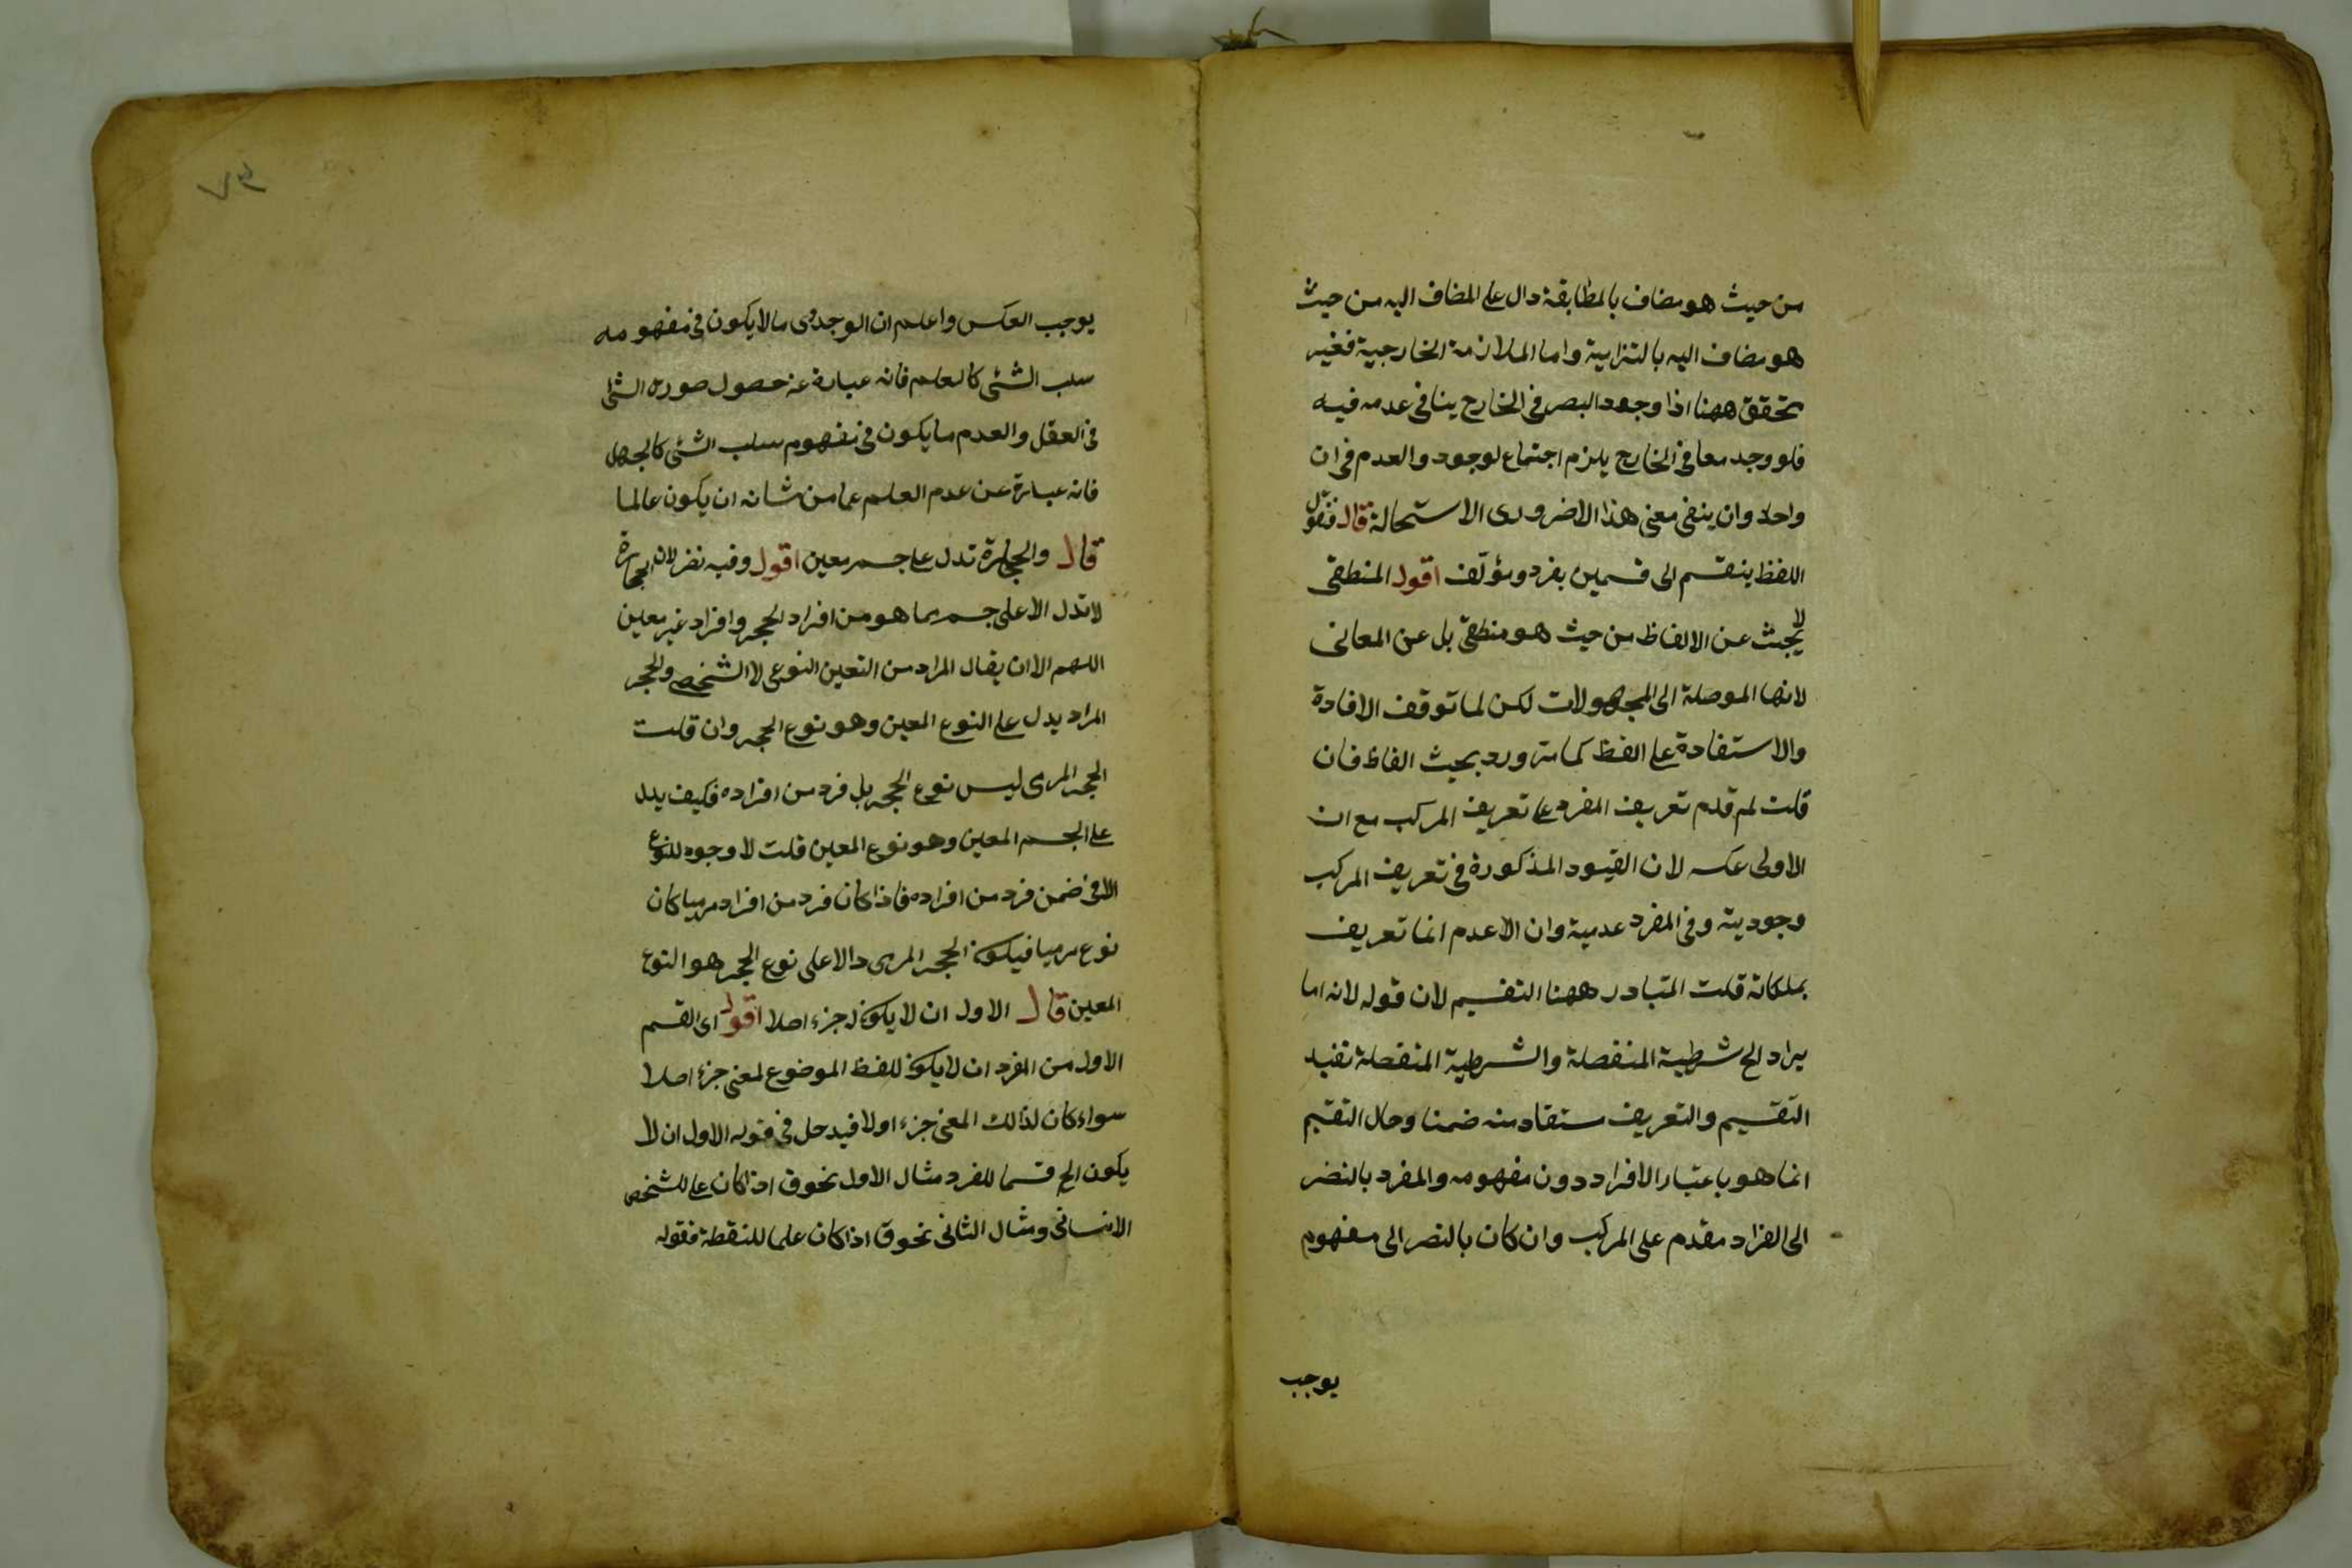 من حيث هو مضاف بالمطابقة دال على المضاف اليه من حيث
هو مضاف اليه بالتزامية واما الملازمة الخارجية فغير
تحقق ههنا اذا وجود البصر في الخارج ينافى عدمه فيه
فلو وجد معا في الخارج يلزم اجتماع لوجود والعدم في ان
واحد وان ينفى معنى هذا الاضرورى الاستحالة قال فنقول
اللفظ ينقسم الى قسمين بفرد ومؤلف اقول المنطقى
لا يبحث عن الالفاظ من حيث هو منطقى بل عن المعانى
لانها الموصلة الى المجهولات لكن لما توقف الافادة
والاستفادة على الفظ كما مر ورد بحيث الفاظ فان
قلت لم قدم تعريف المفرد على تعريف المركب مع ان
الاولى عكسه لان القيود المذكورة في تعريف المركب
وجودية وفى المفرد عدمية وان الاعدم انما تعريف
بملكاته قلت المتبادر ههنا التقسيم لان قوله لانه اما
يراد الخ شرطية المنفصلة والشرطية المنفصلة تفيد
التقسيم والتعريف ستفاد منه ضمنا وحال التقيم
انما هو باعتبار الافراد دون مفهومه والمفرد بالنضر
الى الفراد مقدم على المركب وان كان بالنضر الى مفهوم
يوجب
يوجب العكس واعلم ان الوجدى ما لا يكون في مفهومه
سلب الشئ كالعلم فانه عبارة عن حصول صورة الشئ
في العقل والعدم ما يكون في مفهوم سلب الشئ كالجهل
فانه عبارة عن عدم العلم عما من شانه ان يكون عالما
قال والحجارة تدل على جسم معين اقول وفيه نضر لان الحجارة
لا تدل الا على جسم ما هو من افراد الحجر وافراد غير معين
اللهم الا ان يقال المراد من التعين النوعى لا الشخصى والحجر
المراد يدل على النوع المعين وهو نوع الحجر وان قلت
الحجر المرى ليس نوع الحجر بل فرد من افراده فكيف يدل
على الجسم المعين وهو نوع المعين قلت لا وجود للنوع
الا في ضمن فرد من افراده فاذا كان فرد من افراد مرميا كان
نوع مرميا فيكون الحجر المرى دالا على نوع الحجر هو النوع
المعين قال الاول ان لا يكون له جزء اصلا اقول اى القسم
الاول من المفرد ان لا يكون للفظ الموضوع لمعنى جزء اصلا
سواء كان لذالك المعنى جزء اولا فيدخل في قوله الاول ان لا
يكون الخ قسما للفرد مثال الاول نحو ق اذا كان علما للشخص
الانسانى ومثال الثانى نحو ق اذا كان علما للنقطة فقوله